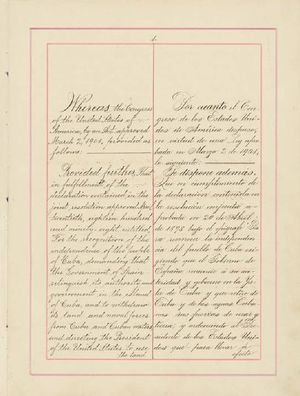 Whereas the Congress
of the United States of
America, by an Act approved
March 2, 1901, provided as
follows:
Provided further, That
in fulfillment of the
declaration contained in the
joint resolution approved April
twentieth, eighteen hundred
and ninety-eight, entitled,
"For the recognition of the
independence of the people
of Cuba, demanding that
the Government of Spain
relinquish its authority and
government in the island
of Cuba, and to withdraw
its land and naval forces
from Cuba and Cuban waters,
and directing the President
of the United States to use
the land
Por cuanto el Con-
greso de los Estados Uni-
dos de América dispuso,
en virtud de una Ley apro-
bada en Marzo 2 de 1901,
lo siguiente:
Se dispone además,
Que en cumplimiento de
la declaración contenida en
la resolución conjunta a-
probada en 20 de Abril
de 1898 bajo el epígrafe "Pa-
ra reconocer la independen-
cia del pueblo de Cuba exi-
giendo que el Gobierno de
España renuncie a su au-
toridad y gobierno en la Is-
la de Cuba y que retire de
Cuba y de las aguas Cuba-
nas sus fuerzas de mar y
tierra y ordenando al Pre-
sidente de los Estados Uni-
dos que para llevar á
efecto